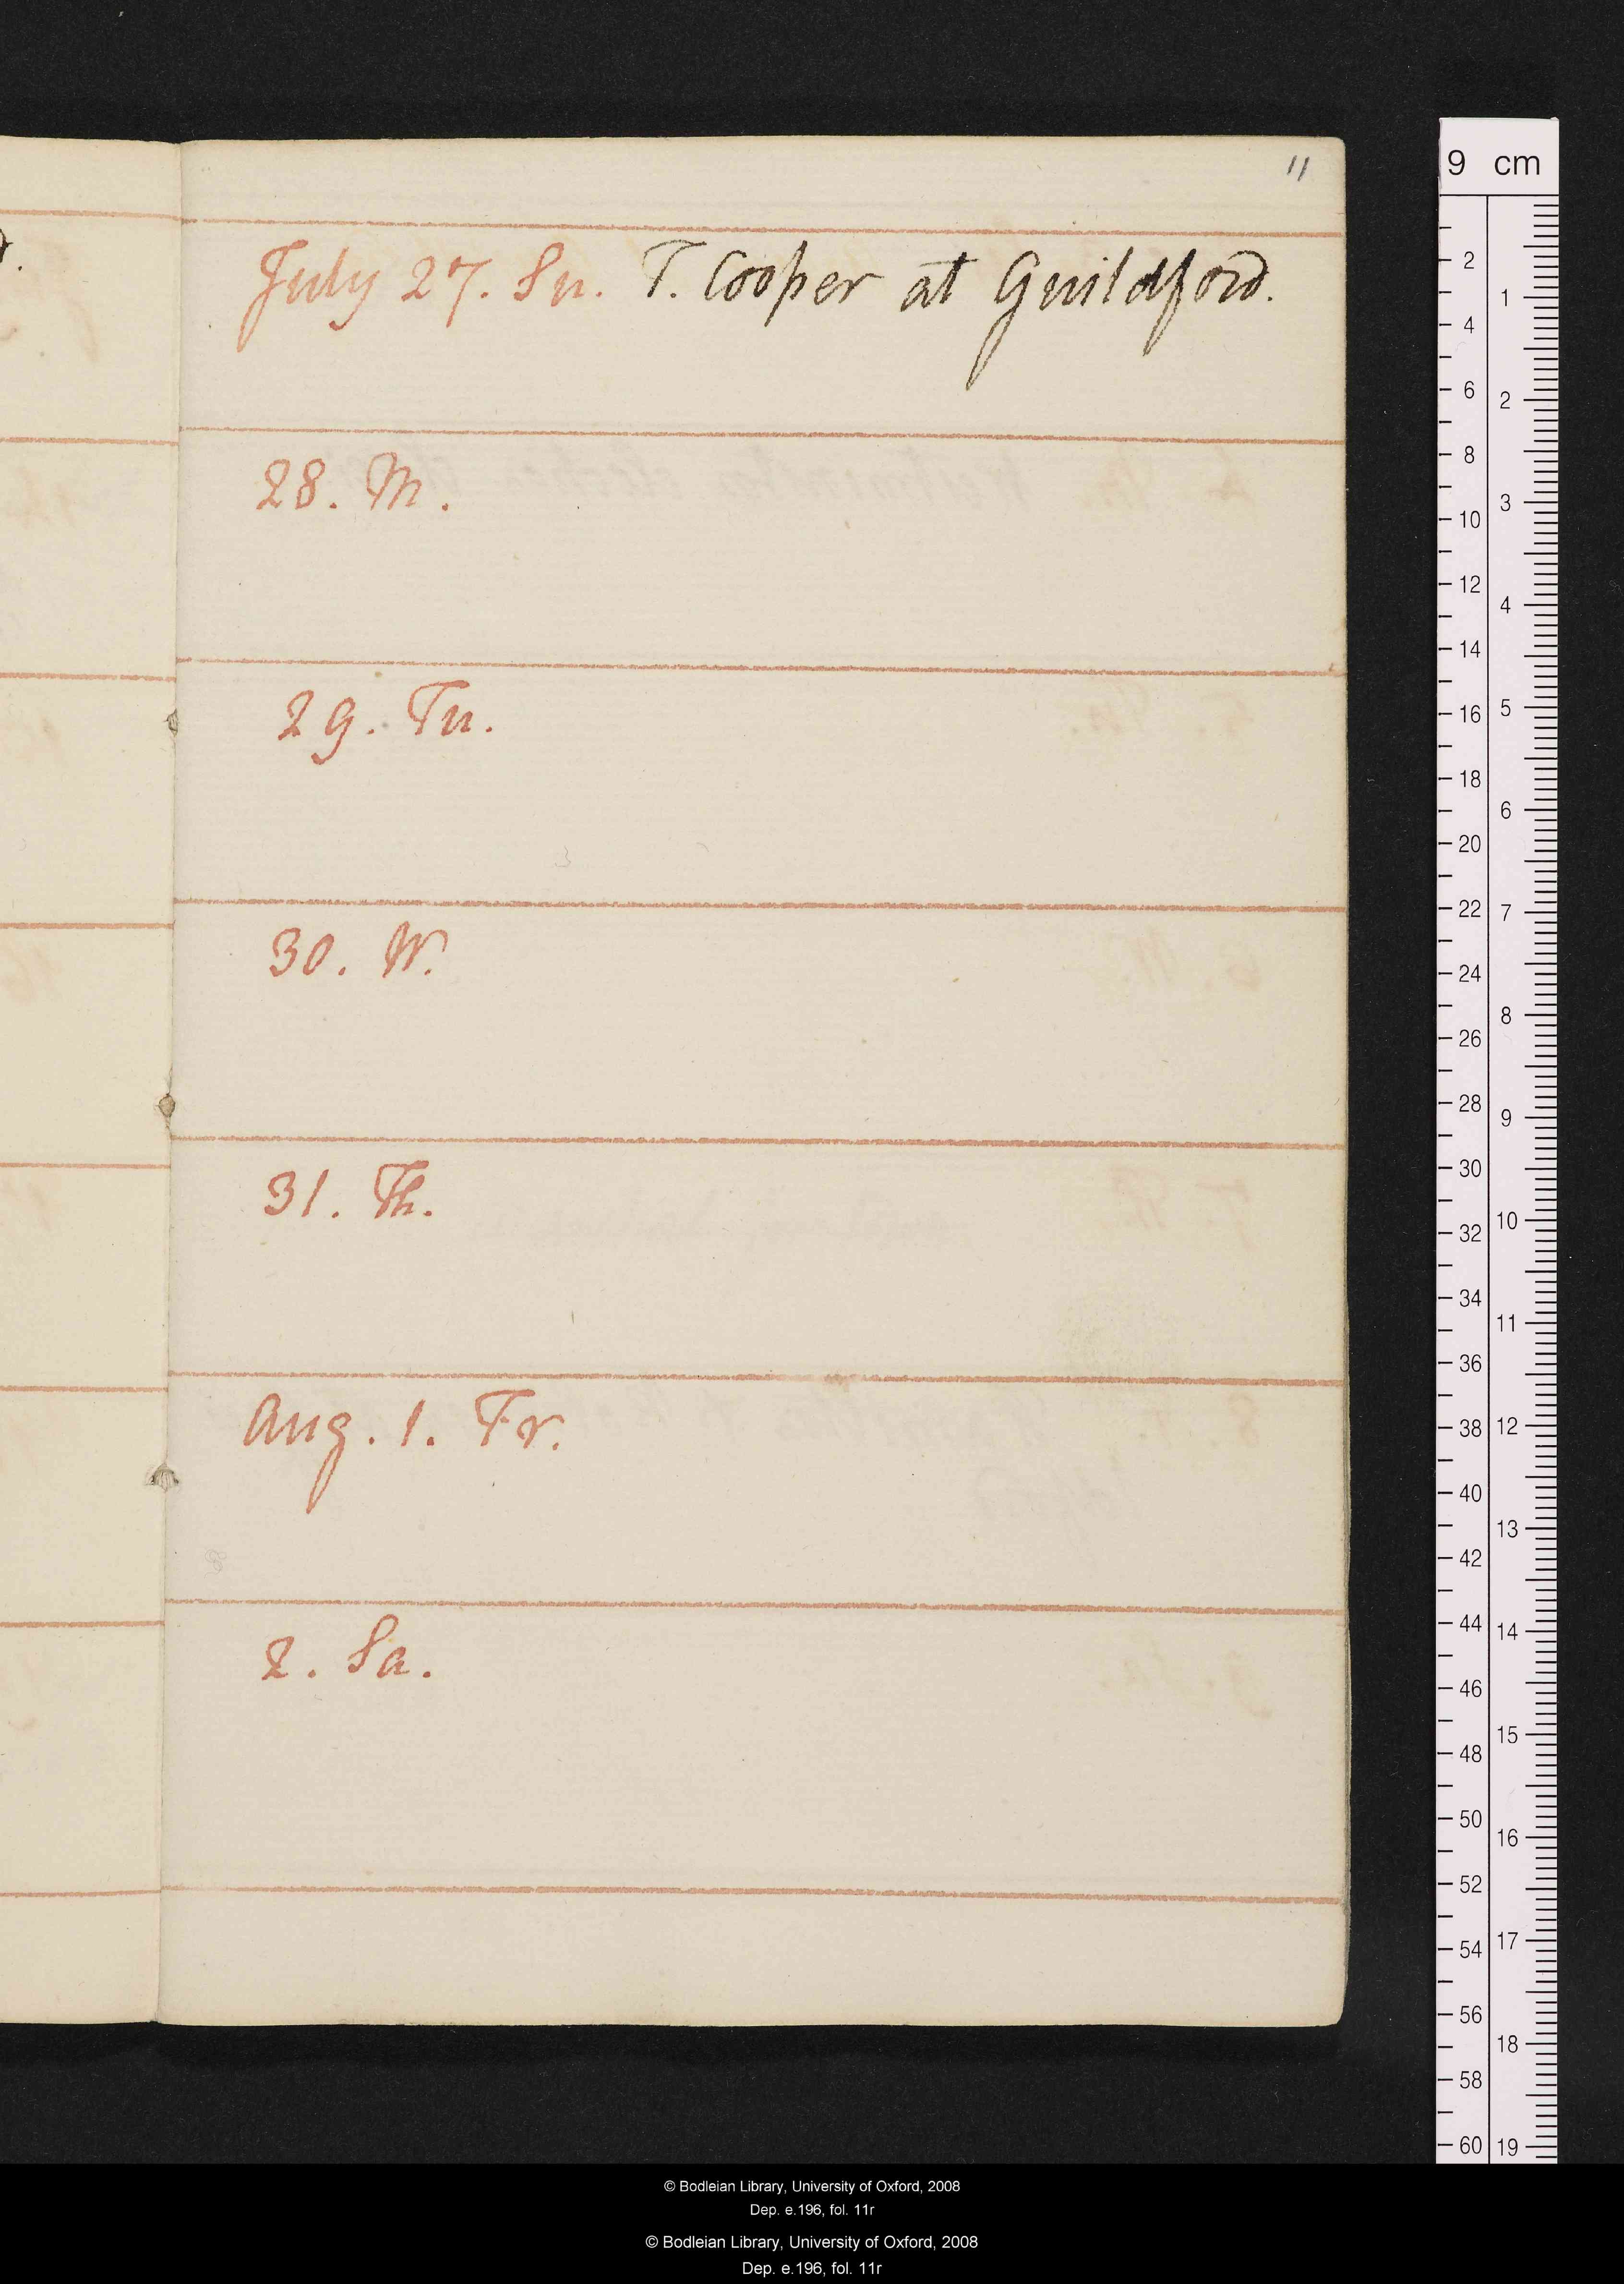 11
July 27. Su. T. Cooper at Guildford.
28. M.
29. Tu.
30. W.
31. Th.
Aug. 1. Fr.
2. Sa.
9 cm
2
4
6
8
10
12
14
16
18
20
22
24
26
28
30
32
34
36
38
40
42
44
46
48
50
52
54
56
58
60
1
2
3
4
5
6
7
8
9
10
11
12
13
14
15
16
17
18
19
© Bodleian Library, University of Oxford, 2008
Dep. e.196, fol. 11r
© Bodleian Library, University of Oxford, 2008
Dep. e.196, fol. 11r